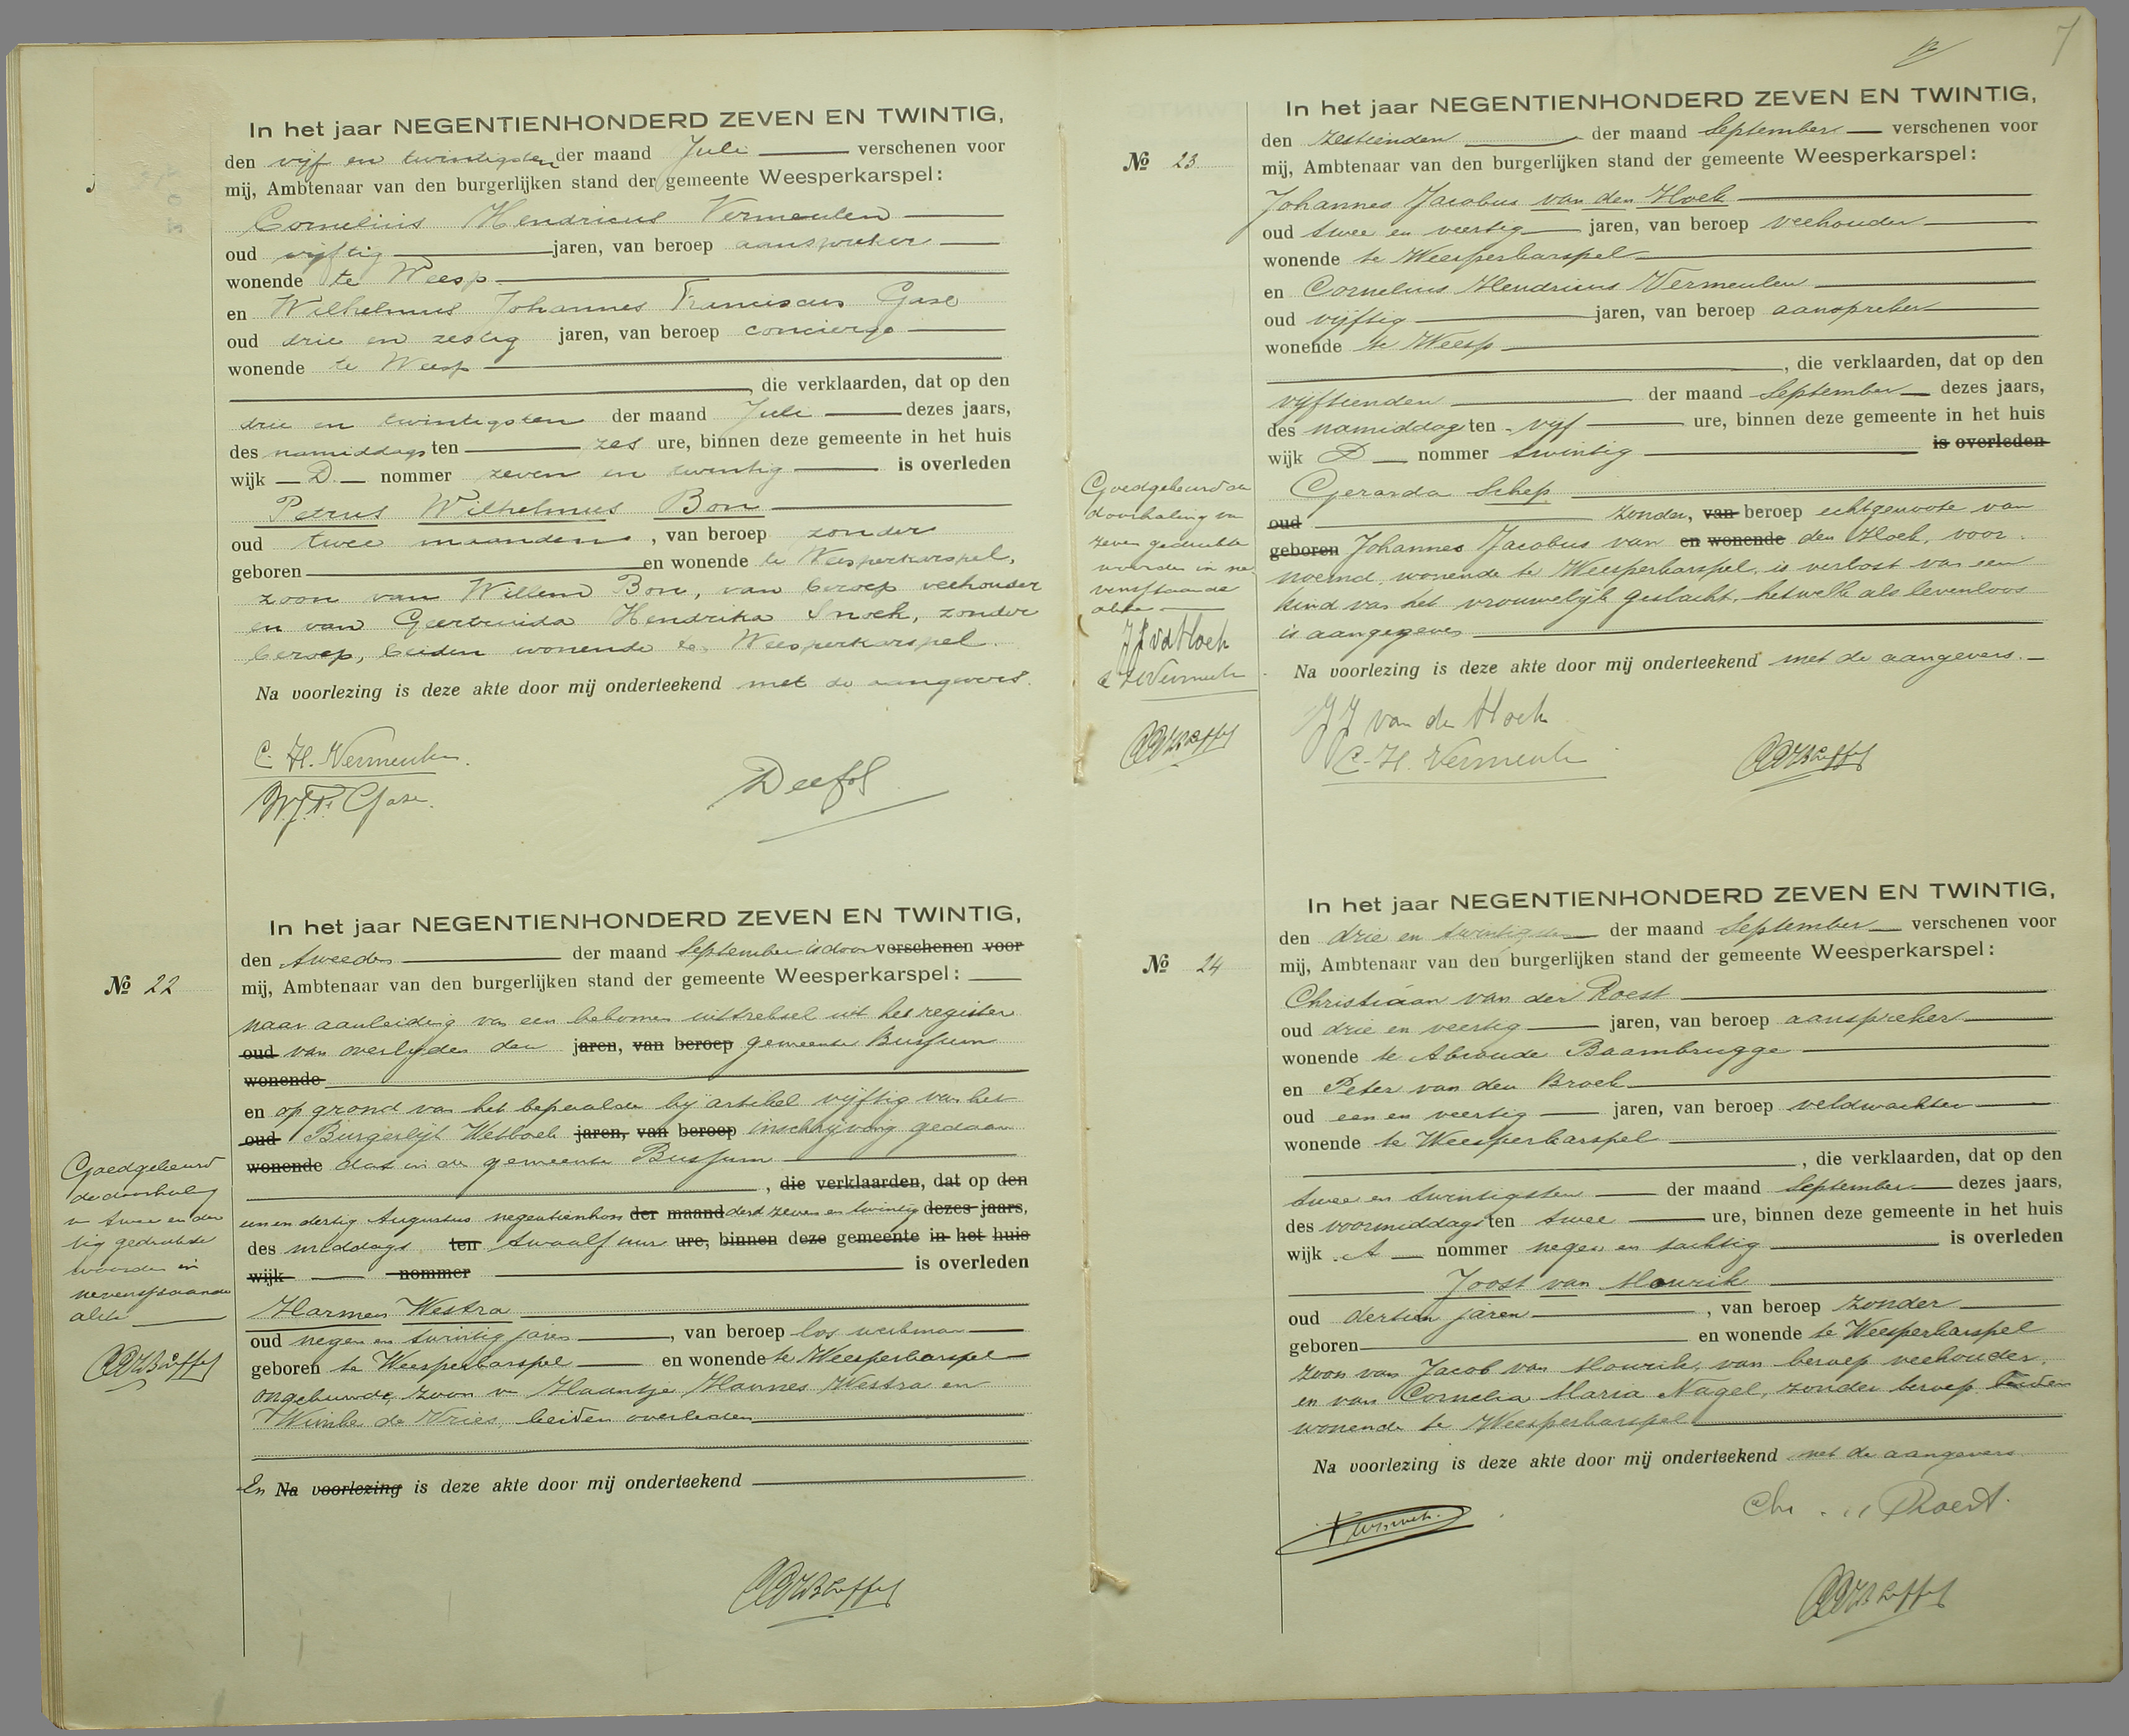 In het jaar NEGENTIENHONDERD ZEVEN EN TWINTIG,
den vijf en twintigsten der maand Juli verschenen voor
mij, Ambtenaar van den burgerlijken stand der gemeente Weesperkarspel:
Cornelius Hendricus Vermeulen
oud vijftig jaren, van beroep aanspreker
wonende te Weesp
en Wilhelmus Johannes Franciscus Gase
oud drie en zestig jaren, van beroep concierge
wonende te Weesp
, die verklaarden, dat op den
drie en twintigsten der maand Juli dezes jaars,
des namiddags ten zes ure, binnen deze gemeente in het huis
wijk D. nommer zeven en twintig is overleden
Petrus Wilhelmus Bon
oud twee maanden, van beroep zonder
geboren en wonende te Weesperkarspel,
zoon van Willem Bon, van beroep veehouder
en van Geertruida Hendrika Snoek, zonder
beroep, beiden wonende te Weesperkarspel.
Na voorlezing is deze akte door mij onderteekend met de aangevers.
C. H. Vermeulen.
W.J.F. Gase.
No 22
In het jaar NEGENTIENHONDERD ZEVEN EN TWINTIG,
den tweeden der maand September is door verschenen voor
mij, Ambtenaar van den burgerlijken stand der gemeente Weesperkarspel:
naar aanleiding van een bekomen uittreksel uit het register
oud van overlijden der jaren, van beroep gemeente Bussum
wonende
en op grond van het bepaalde bij artikel vijftig van het
oud Burgerlijk Wetboek jaren, van beroep inschrijving gedaan
wonende dat in de gemeente Bussum
, die verklaarden, dat op den
een en dertig Augustus negentienhon der maand derd zeven en twintig dezes jaars,
des middags ten twaalf uur ure, binnen deze gemeente in het huis
wijk nommer is overleden
Harmen Westra
oud negen en twintig jaren, van beroep los werkman
geboren te Weesperkarspel en wonende te Weesperkarspel
ongehuwde, zoon v Haantje Hannes Westra en
Wimke de Vries, beiden overleden
En Na voorlezing is deze akte door mij onderteekend
Goedgekeurd
de doorhaling
v twee en der
tig gedrukte
woorden in
nevenstaande
akte
7
No 23
In het jaar NEGENTIENHONDERD ZEVEN EN TWINTIG,
den zestienden der maand September verschenen voor
mij, Ambtenaar van den burgerlijken stand der gemeente Weesperkarspel:
Johannes Jacobus van den Hoek
oud twee en veertig jaren, van beroep veehouder
wonende te Weesperkarspel
en Cornelius Hendricus Vermeulen
oud vijftig jaren, van beroep aanspreker
wonende te Weesp
, die verklaarden, dat op den
vijftienden der maand September dezes jaars,
des namiddags ten vijf ure, binnen deze gemeente in het huis
wijk D nommer twintig is overleden
Gerarda Schep
oud zonder, van beroep echtgenoote van
geboren Johannes Jacobus van en wonende den Hoek, voor
noemd, wonende te Weesperkarspel, is verlost van een
kind van het vrouwelijk geslacht, hetwelk als levenloos
is aangegeven
Na voorlezing is deze akte door mij onderteekend met de aangevers.
J J van den Hoek
C. H. Vermeulen
Goedgekeurd de
doorhaling van
zeven gedrukte
woorden in ne
venstaande
akte
JJ vd Hoek
C H Vermeulen
No 24
In het jaar NEGENTIENHONDERD ZEVEN EN TWINTIG,
den drie en twintigsten der maand September verschenen voor
mij, Ambtenaar van den burgerlijken stand der gemeente Weesperkarspel:
Christiaan van der Roest
oud drie en veertig jaren, van beroep aanspreker
wonende te Abcoude Baambrugge
en Peter van den Broek
oud een en veertig jaren, van beroep veldwachter
wonende te Weesperkarspel
, die verklaarden, dat op den
twee en twintigsten der maand September dezes jaars,
des voormiddags ten twee ure, binnen deze gemeente in het huis
wijk A nommer negen en tachtig is overleden
Joost van Mourik
oud dertien jaren, van beroep zonder
geboren en wonende te Weesperkarspel
zoon van Jacob van Mourik, van beroep veehouder,
en van Cornelia Maria Nagel, zonder beroep beiden
wonende te Weesperkarspel
Na voorlezing is deze akte door mij onderteekend met de aangevers
Chr. Roest.